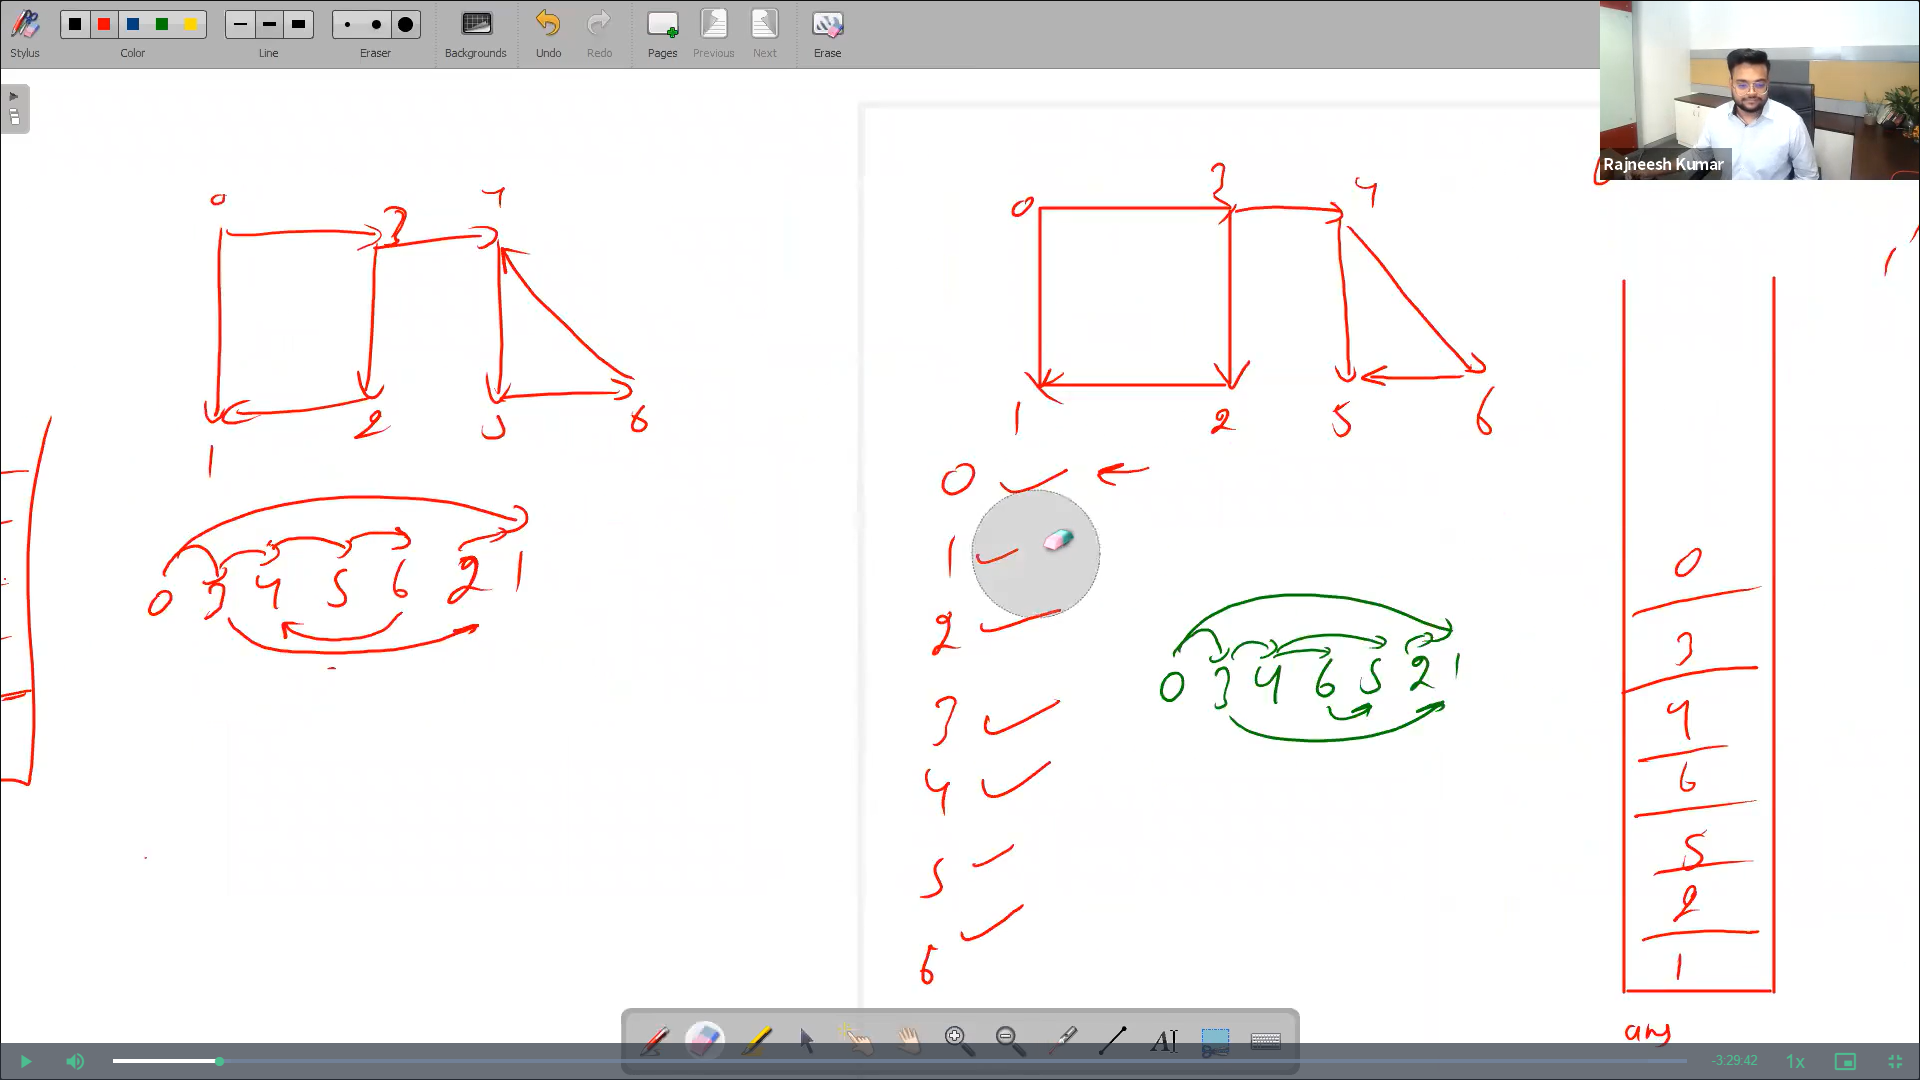 Stylus
Color
Line
Eraser
Backgrounds
Undo
Redo
Pages
Previous
Next
Erase
Rajneesh Kumar
0 3 4
1 2 5 6
0 3 4 5 6 2 1
0 3 4
1 2 5 6
0
1
2
3
4
5
6
0 3 4 6 5 2 1
0
3
4
6
5
2
1
ans
-3:29:42
1x